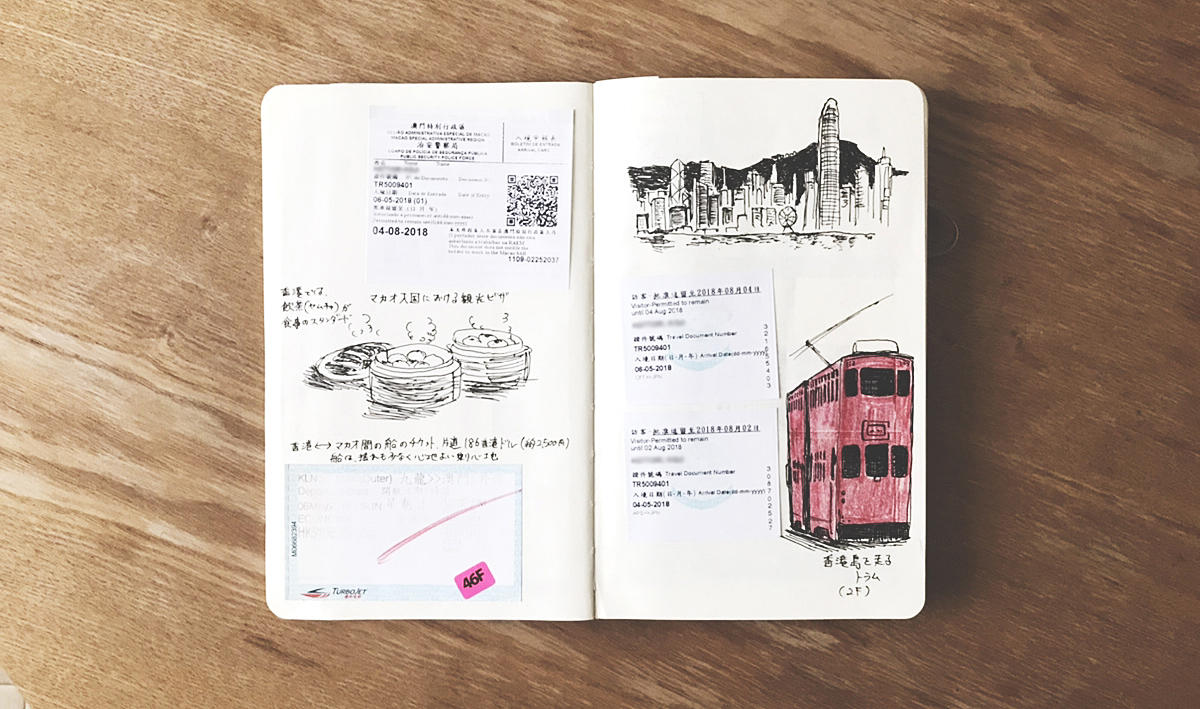 澳門特別行政區
REGIÃO ADMINISTRATIVA ESPECIAL DE MACAU
MACAO SPECIAL ADMINISTRATIVE REGION
治安警察局
CORPO DE POLÍCIA DE SEGURANÇA PÚBLICA
PUBLIC SECURITY POLICE FORCE
入境申報表
BOLETIM DE ENTRADA
ARRIVAL CARD
姓名 Nome Name
證件號碼 N°. do Documento Document N°.
TR5009401
入境日期 Data de Entrada Date of Entry
06-05-2018 (01)
04-08-2018
This document does not enable the
holder to work in the Macao SAR
1109-02252037
マカオ入国における観光ビザ
香港では、
飲茶(ヤムチャ)が
食事のスタンダード
香港⟷マカオ間の船のチケット、片道186香港ドル(約2,500円)
船は、揺れも少なく心地よい乗り心地
KLN (Outer) 九龍>>澳門
TURBOJET
46F
訪客-批准逗留至2018年08月04日
Visitor-Permitted to remain
until 04 Aug 2018
證件號碼 Travel Document Number
TR5009401
入境日期(日-月-年) Arrival Date(dd-mm-yyyy)
06-05-2018
訪客-批准逗留至2018年08月02日
Visitor-Permitted to remain
until 02 Aug 2018
證件號碼 Travel Document Number
TR5009401
入境日期(日-月-年) Arrival Date(dd-mm-yyyy)
04-05-2018
香港島を走る
トラム
(2F)